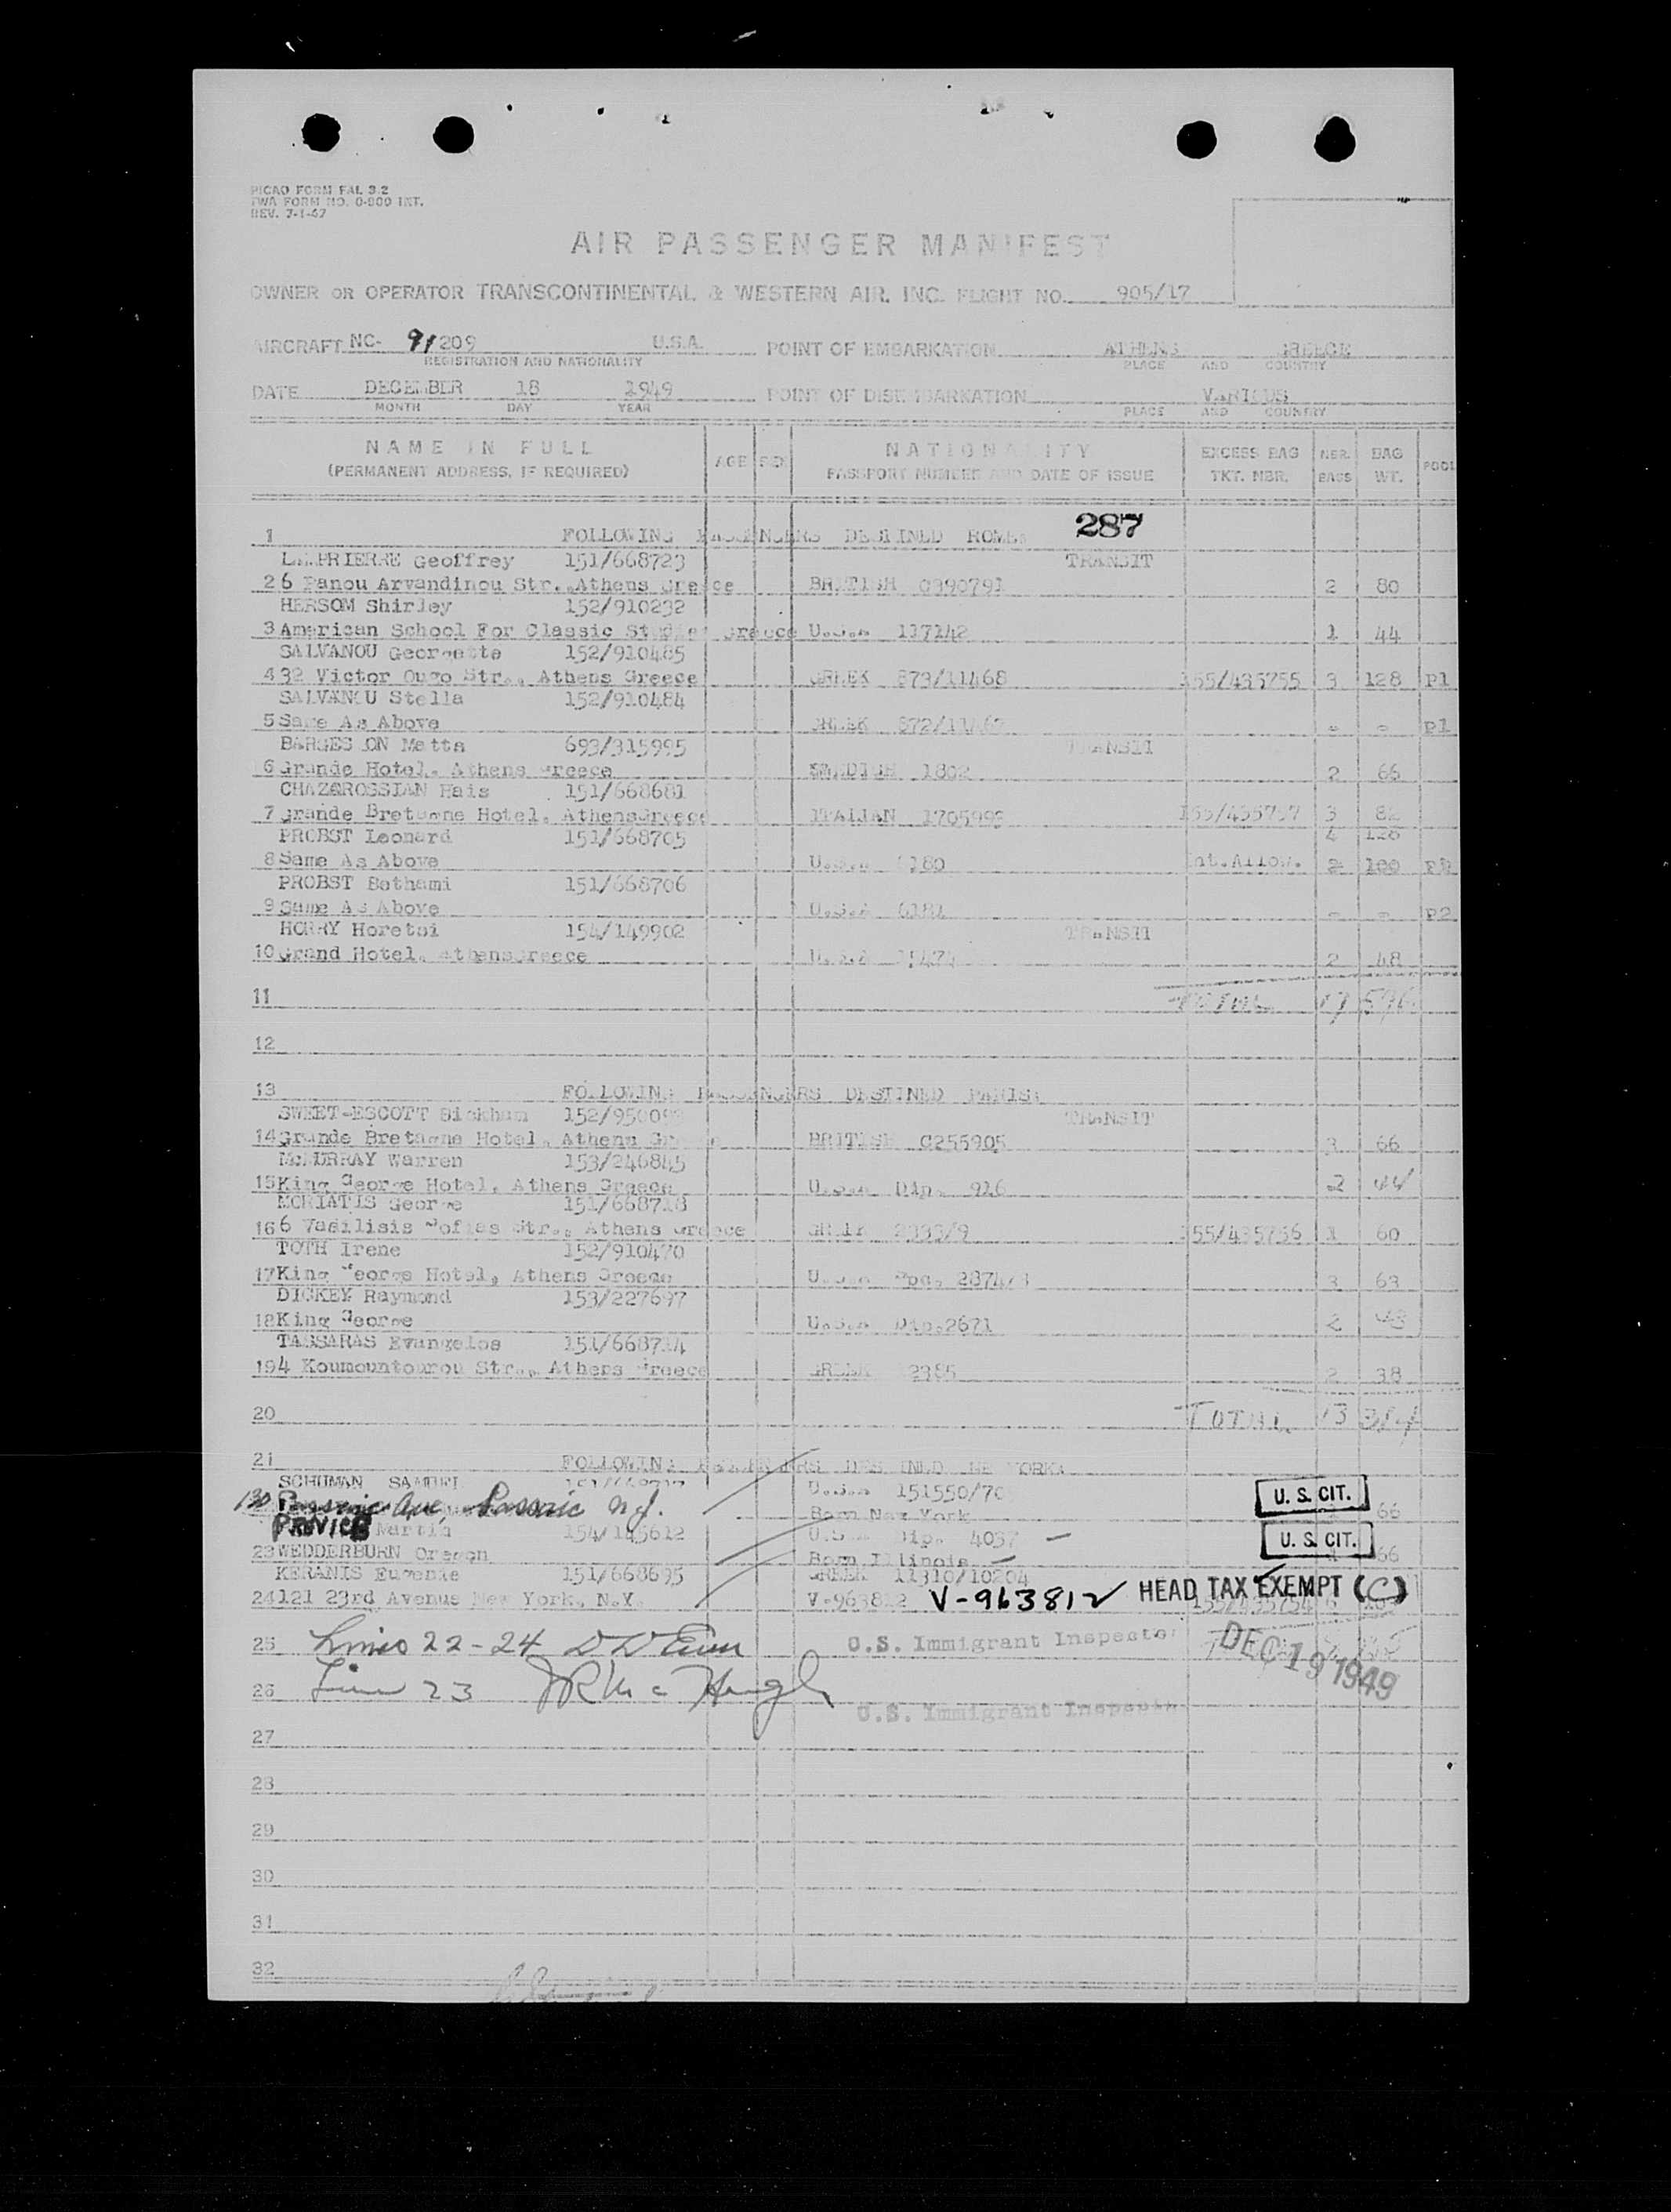 PICAO FORM FAL 3.2
TWA FORM NO. 0-800 INT.
REV. 7-1-47
AIR PASSENGER MANIFEST
OWNER OR OPERATOR TRANSCONTINENTAL & WESTERN AIR, INC. FLIGHT NO. 905/17
AIRCRAFT NC- 91209 U.S.A. POINT OF EMBARKATION ATHENS GREECE
REGISTRATION AND NATIONALITY PLACE AND COUNTRY
DATE DECEMBER 18 1949 POINT OF DISEMBARKATION VARIOUS
MONTH DAY YEAR PLACE AND COUNTRY
NAME IN FULL AGE NATIONALITY EXCESS BAG NBR. BAG POOL
(PERMANENT ADDRESS, IF REQUIRED) PASSPORT NUMBER AND DATE OF ISSUE TKT. NBR. BAGS WT.
287
1 FOLLOWING PASSENGERS DESTINED ROME:
Geoffrey 151/668723 TRANSIT
2 6 Panou Arvandinou Str., Athens Greece BRITISH C390791 2 80
HERSOM Shirley 152/910232
3 American School For Classic Greece U.S.A 117142 1 44
SALVANOU Georgette 152/910485
4 32 Victor Ougo Str., Athens Greece GREEK 873/11468 155/435755 3 128 P1
SALVANOU Stella 152/910484
5 Same As Above GREEK - - P1
Matts 693/315995 TRANSIT
6 Grande Hotel, Athens Greece SWEDISH 1802 2 66
Hais 151/668681
7 Grande Bretagne Hotel, Athens Greece ITALIAN 3 82
PROBST Leonard 151/668705 4 126
8 Same As Above U.S.A Int.Allow. 2 100
PROBST Bathami 151/668706
9 Same As Above U.S.A 6181 - - P2
HORRY Horetsi 154/149902 TRANSIT
10 Grand Hotel, Athens Greece U.S.A 2 48
11 TOTAL 17
12
13 FOLLOWING PASSENGERS DESTINED PARIS:
SWEET-ESCOTT Bickham TRANSIT
14 Grande Bretagne Hotel, Athens BRITISH C255905 3 66
McMURRAY Warren 153/246845
15 King George Hotel, Athens Greece U.S.A Dip. 926 2 44
MORIATIS George 151/668718
16 6 Vasilisis Sofias Str., Athens Greece GREEK 155/435756 1 60
TOTH Irene 152/910470
17 King George Hotel, Athens Greece U.S.A 3 63
DICKEY Raymond 153/227697
18 King George U.S.A Dip.2671 2
TASSARAS Evangelos 151/668714
19 4 Koumountourou Str., Athens Greece GREEK 2385 2 38
20 TOTAL 13
21 FOLLOWING PASSENGERS DESTINED NEW YORK:
SCHUMAN SAMUEL U.S.A U.S. CIT.
130 Passaic Ave, Passaic N.J. Born New York 66
Martin 154/145612 U.S.A Dip. 4037 U.S. CIT.
23 WEDDERBURN Oregon Born Illinois 66
KERANIS Eugenie 151/668695 GREEK 11310/10204
24 121 23rd Avenue New York, N.Y. V-963812 V-963812 HEAD TAX EXEMPT (C)
155/435754
25 Lines 22-24 U.S. Immigrant Inspector DEC 19 1949
26 Line 23 J R McHugh
U.S. Immigrant Inspector
27
28
29
30
31
32